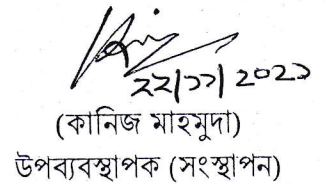 ২২/১১/২০২১
(কানিজ মাহমুদা)
উপব্যবস্থাপক (সংস্থাপন)